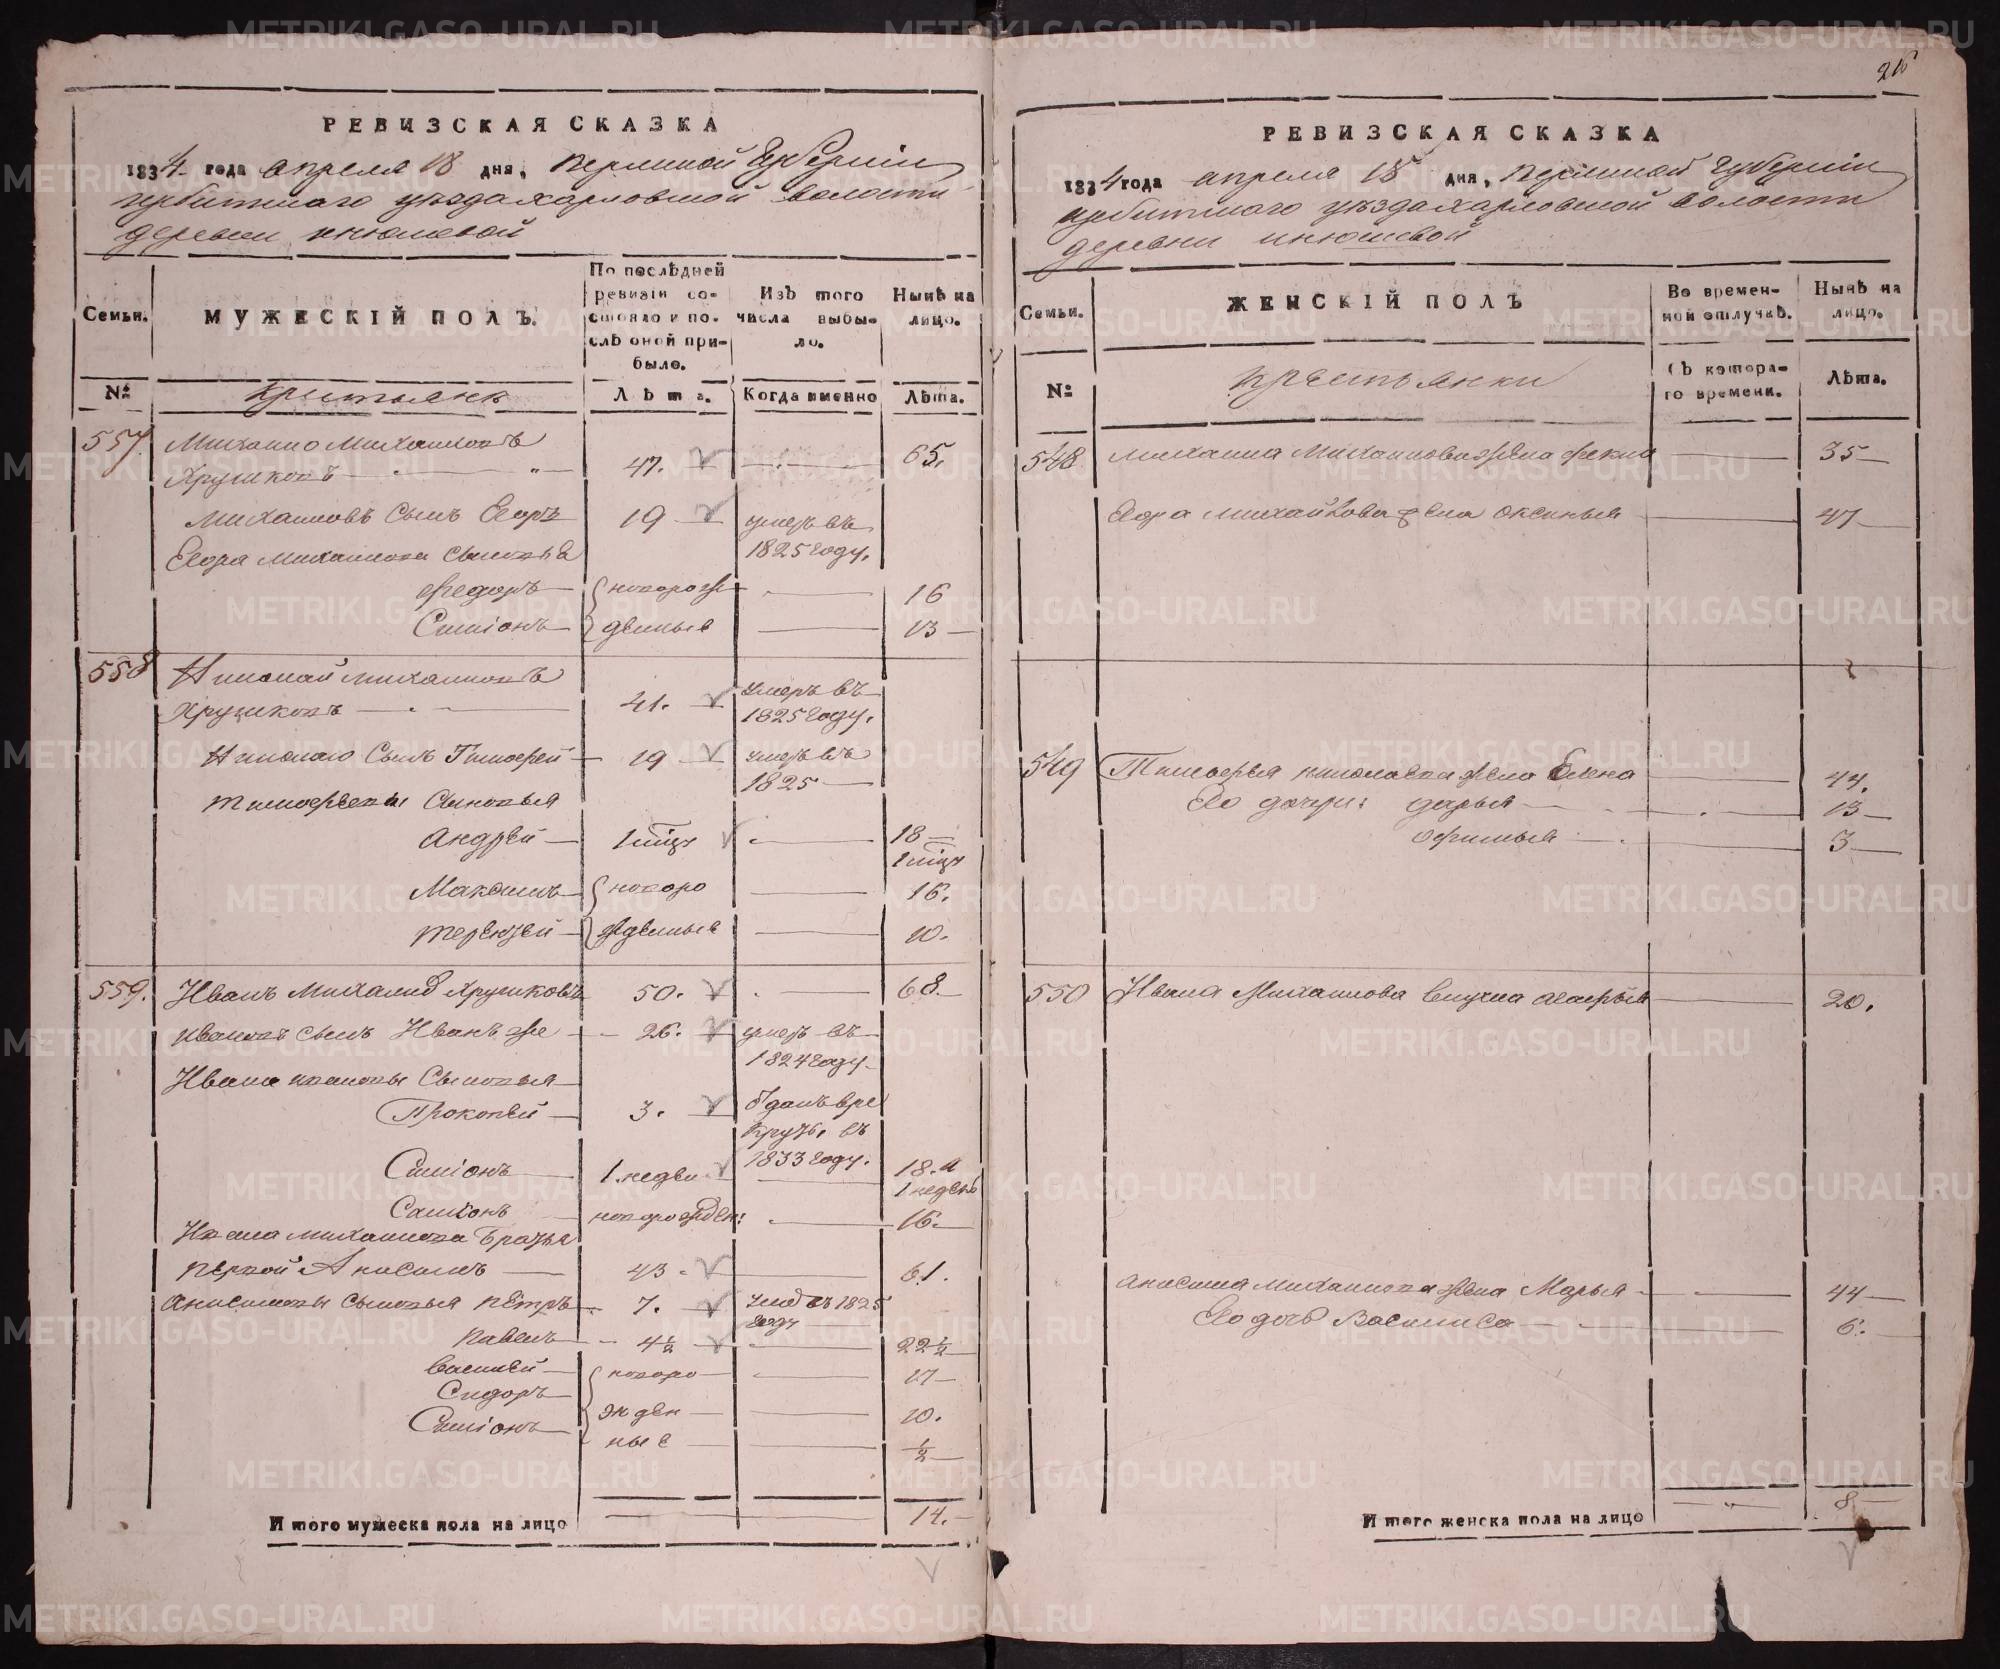 РЕВИЗСКАЯ СКАЗКА
1834 года апреля 18 дня, Пермской Губернии
Ирбитскаго уезда харловской волости
деревни инюшевой
Семьи.
МУЖЕСКІЙ ПОЛЪ.
По послѣдней ревизіи состояло и послѣ оной прибыло.
Изъ того числа выбыло.
Нынѣ на лицо.
№
крестьяне
Лѣта.
Когда именно
Лѣта.
557. Михаило Михаиловъ
Хрушковъ 47. 65.
Михаиловъ Сынъ Егоръ 19 умеръ въ
1825 году.
Егора Михаилова Сыновья
Федоръ новорож 16
Симіонъ денные 13
558 Николай Михаиловъ умеръ въ
Хрушковъ 41. 1825 году.
Николаю Сынъ Тимофей 19 умеръ въ
1825
тимофеевы Сыновья
Андрей 1 мсцъ 18
1 мсцъ
Максимъ новоро 16.
терентей жденные 10.
559. Иванъ Михаиловъ Хрушковъ 50. 68.
ивановъ сынъ Иванъ же 26. умеръ въ
1824 году
Ивана ивановы Сыновья
Прокопей 3. Отданъ в ре
круты въ
1833 году.
Симіонъ 1. недели 18. и
1 недель
Самсонъ новорожден: 16.
Ивана михаилова Братья
первой Анисимъ 43 61.
Анисимовы сыновья Петръ 7. умеръ въ 1825
году
павелъ 4½ 22½
василей новоро 17
Сидоръ жден 10.
Симіонъ ные ½
Итого мужеска пола на лицо 14.
216
РЕВИЗСКАЯ СКАЗКА
1834 года апреля 18 дня, Пермской Губернии
ирбитскаго уезда харловской волости
деревни инюшевой
Семьи.
ЖЕНСКІЙ ПОЛЪ
Во временной отлучкѣ.
Нынѣ на лицо.
№
крестьянки
Съ котораго времени.
Лѣта.
548 михаила Михаиловажена фекла 35
Егора михайлова жена оксинья 47
549 Тимофея николаева жена Елена 44.
Его дочери: дарья 13
офимья 3
550 Ивана Михаилова внучка агафья 20.
анисима михаилова жена Марья 44
Его дочь Василиса 6.
Итого женска пола на лицо 8
METRIKI.GASO-URAL.RU